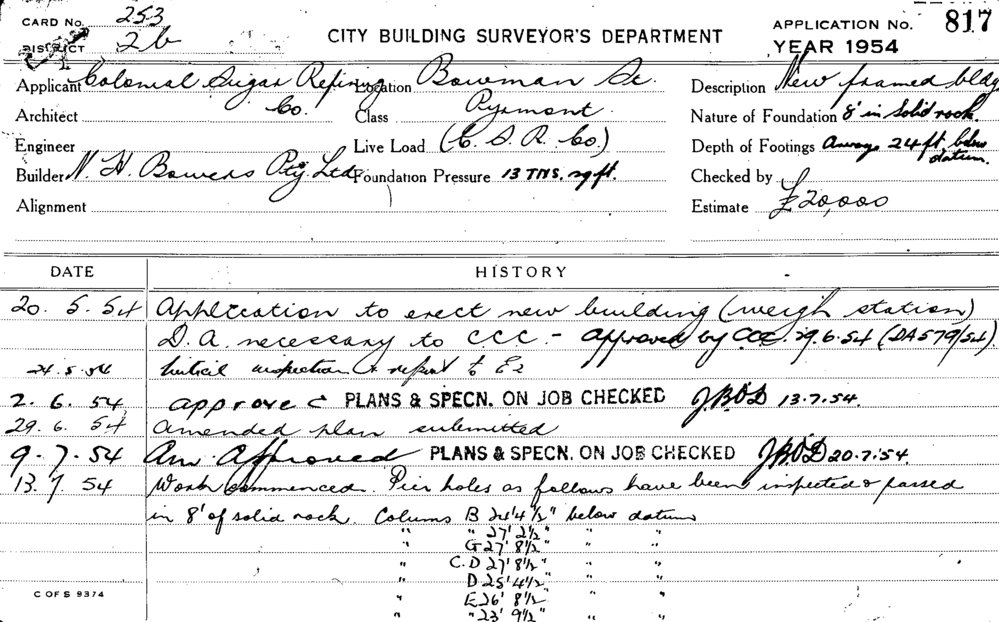 CARD No. 253
DISTRICT 2b
CITY BUILDING SURVEYOR'S DEPARTMENT
APPLICATION No. 817
YEAR 1954
Applicant Colonial Sugar Refining Co.
Location Bowman St.
Pyrmont.
Description New framed bldg
Architect
Class
Nature of Foundation 8' in Solid rock.
Engineer
Live Load (C. S. R. Co.)
Depth of Footings 24 ft. below datum.
Builder N. H. Bowers Pty. Ltd.
Foundation Pressure 13 TNS. sq ft.
Checked by
Alignment
Estimate £20,000
DATE HISTORY
20. 5. 54 Application to erect new building (weigh station)
D. A. necessary to CCC - Approved by CCC. 29.6.54 (DA 579/54)
24.5.54 Initial inspection & report to
2. 6. 54 approve PLANS & SPECN. ON JOB CHECKED 13.7.54.
29. 6. 54 Amended plan submitted
9. 7. 54 Am. Approved PLANS & SPECN. ON JOB CHECKED 20.7.54.
13. 7. 54 Work Commenced. Pier holes as follows have been inspected & passed
in 8' of solid rock. Colums B 24' 4 1/2" below datum
" " 27' 2 1/2" " "
" G 27' 8 1/2" " "
" C. D 27' 8 1/2" " "
" D 25' 4 1/2" " "
" E 26' 8 1/2" " "
" " 23' 9 1/2" " "
C OF S 9374